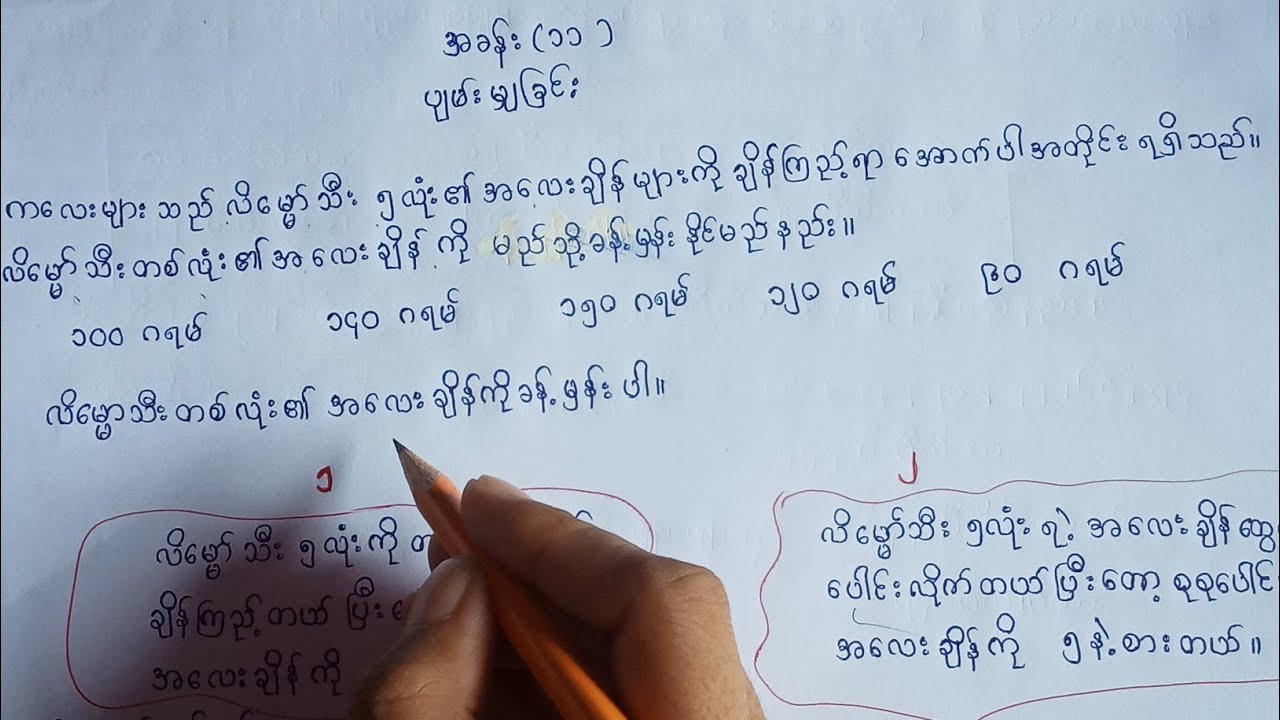 အခန်း (၁၁)
ပျမ်းမျှခြင်း
ကလေးများသည် လိမ္မော်သီး ၅ လုံး၏ အလေးချိန်များကို ချိန်ကြည့်ရာ အောက်ပါအတိုင်း ရရှိသည်။
လိမ္မော်သီးတစ်လုံး၏ အလေးချိန်ကို မည်သို့ခန့်မှန်းနိုင်မည်နည်း။
၁၀၀ ဂရမ် ၁၄၀ ဂရမ် ၁၅၀ ဂရမ် ၁၂၀ ဂရမ် ၉၀ ဂရမ်
လိမ္မောသီးတစ်လုံး၏ အလေးချိန်ကိုခန့်မှန်းပါ။
၁
လိမ္မော်သီး ၅ လုံးကို
ချိန်ကြည့်တယ်
အလေးချိန်ကို
၂
လိမ္မော်သီး ၅လုံးရဲ့ အလေးချိန်တွေ
ပေါင်းလိုက်တယ်ပြီးတော့ စုစုပေါင်း
အလေးချိန်ကို ၅ နဲ့စားတယ်။